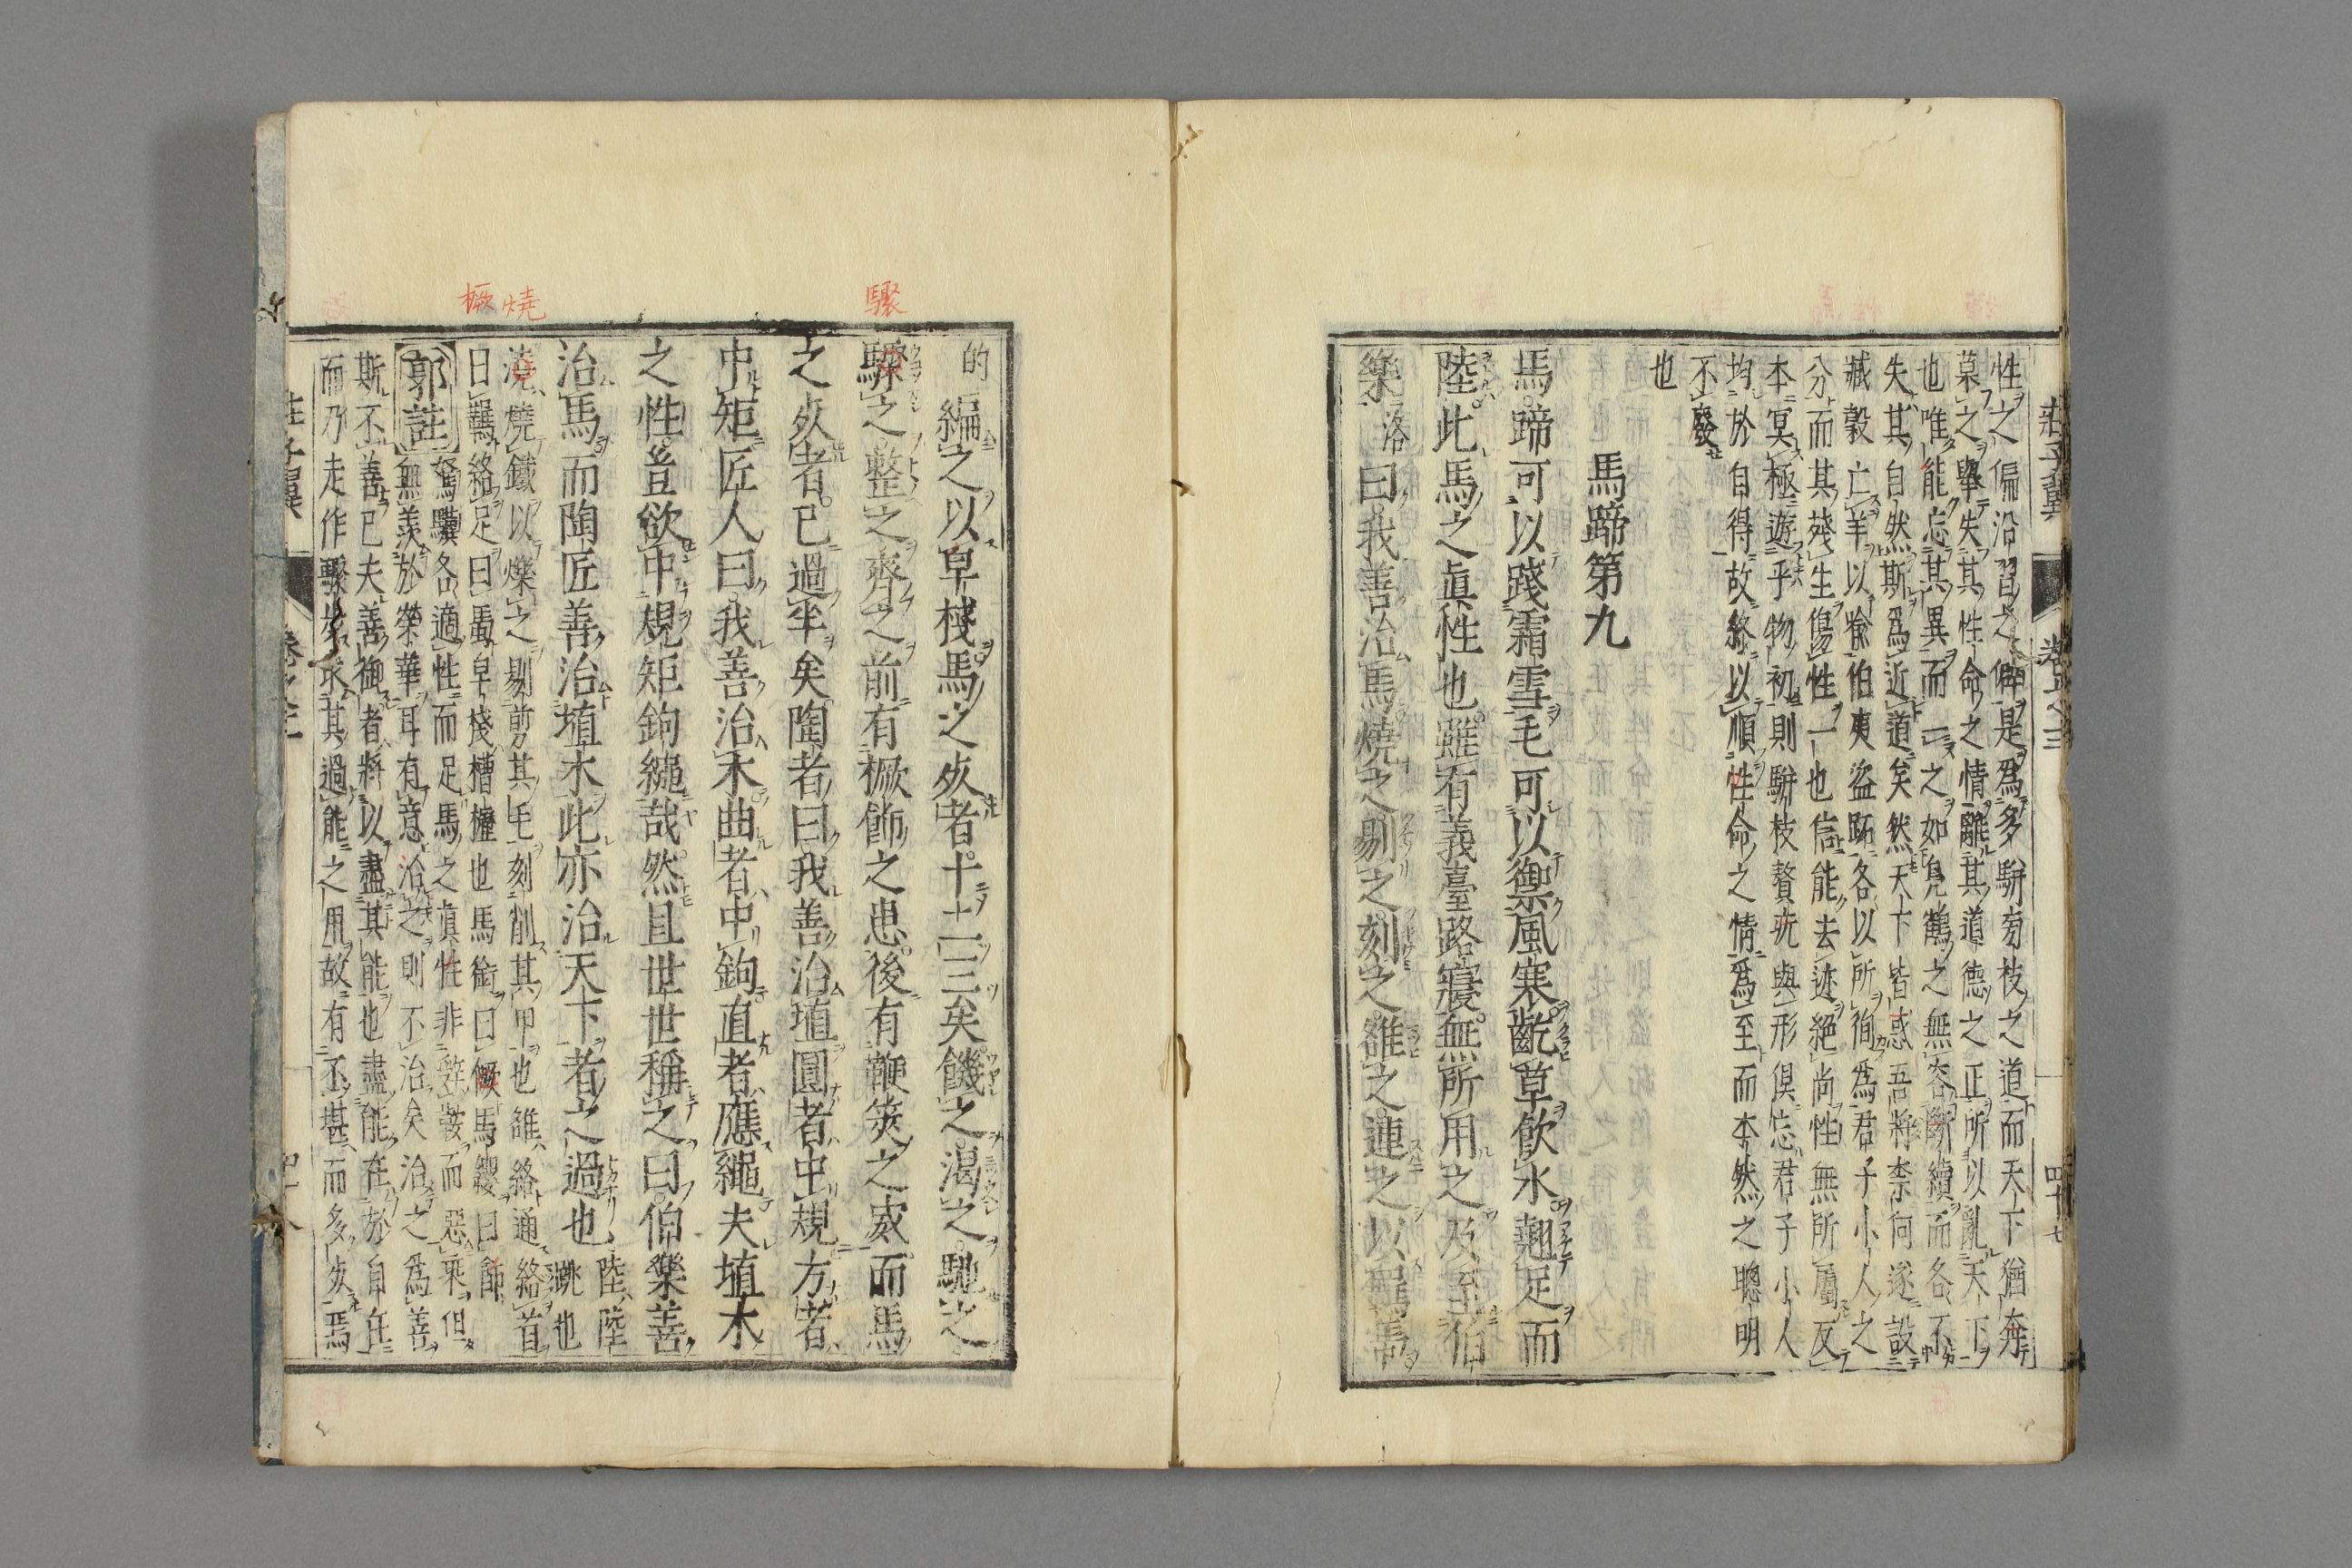 莊子翼　卷之三　四十七
性之偏沿習之僻是為多駢旁枝之道而天下猶奔
慕之舉失其性命之情離其道德之正所以亂天下
也唯能忘其異而一之如鳧鶴之無容斷續而各不
失其自然斯為近道矣然天下皆惑吾將柰何遂設
臧穀亡羊以喻伯夷盜跖各以所徇為君子小人之
分而其殘生傷性一也信能去迹絕尚性無所屬反
本冥極遊乎物初則駢枝贅疣與形俱忘君子小人
均於自得故終以順性命之情為至而本然之聰明
不廢
也
馬蹄第九
馬。蹄可以踐霜雪毛可以禦風寒。齕草飲水。翹足而
陸。此馬之眞性也。雖有義臺路寢。無所用之及至伯
樂洛曰。我善治馬。燒之。剔之。刻之。雒之。連之以羈馽
的編之以皁棧。馬之死者。十二三矣。饑之。渴之。馳之。
驟之。整之。齊之。前有橛飾之患。後有鞭筴之威。而馬
之死者。已過半矣。陶者曰我善治埴圓者中規方者
中矩。匠人曰。我善治木。曲者中鉤直者應繩夫埴木
之性。豈欲中規矩鉤繩哉。然且世世稱之曰。伯樂善
治馬而陶匠善治埴木此亦治天下者之過也陸陸
跳也
澆燒鐵以爍之剔剪其毛刻削其甲也雒絡通絡首
曰羈絡足曰馽皁棧槽櫪也馬銜曰橛馬纓曰飾
郭註　駑驥各適性而足馬之眞性非辭鞍而惡乘但
無羨於榮華耳有意治之則不治矣治之為善
斯不善已夫善御者將以盡其能也盡能在於自任
而乃走作驟步求其過能之用故有不堪而多死焉
莊子翼　卷之三　四十八
驟
燒
橛